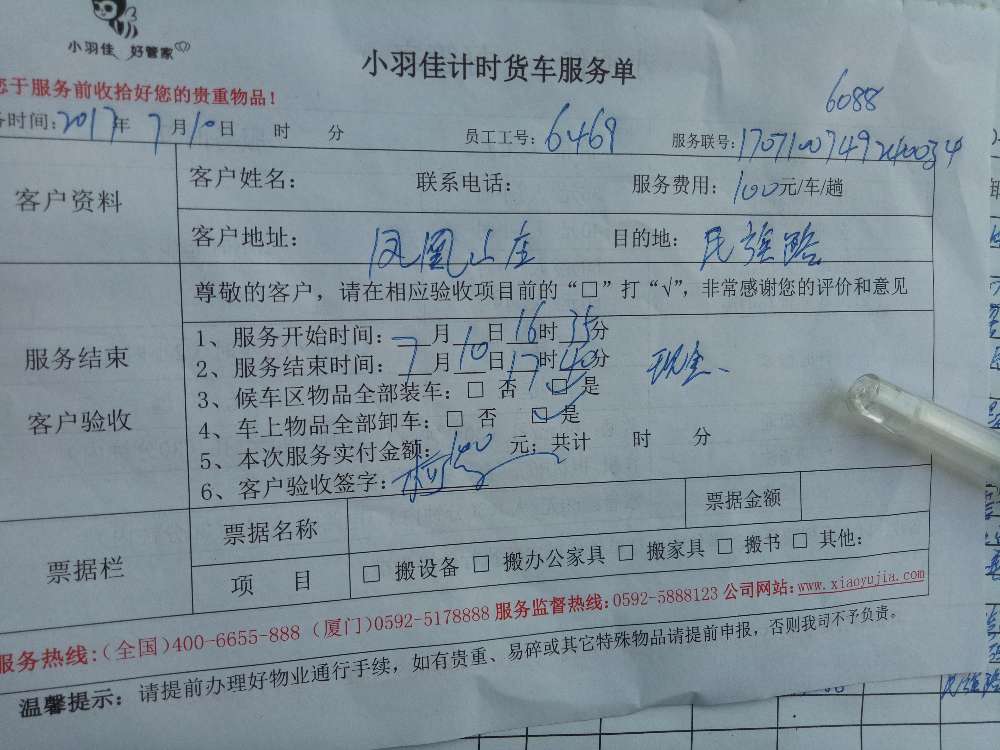 小羽佳 好管家
小羽佳计时货车服务单
您于服务前收拾好您的贵重物品！
6088
务时间：2017年 7月10日 时 分 员工工号：6469 服务联号：1707100749240034
客户资料
客户姓名： 联系电话： 服务费用：100元/车/趟
客户地址：凤凰山庄 目的地：民族路
服务结束
客户验收
尊敬的客户，请在相应验收项目前的“□”打“√”，非常感谢您的评价和意见
1、服务开始时间：7月10日16时35分
2、服务结束时间：7月10日17时40分 现金、
3、候车区物品全部装车：□ 否 □ 是
4、车上物品全部卸车：□ 否 □ 是
5、本次服务实付金额：100元；共计 时 分
6、客户验收签字：
票据栏
票据名称 票据金额
项 目 □ 搬设备 □ 搬办公家具 □ 搬家具 □ 搬书 □ 其他：
服务热线：（全国）400-6655-888（厦门）0592-5178888 服务监督热线：0592-5888123 公司网站：www.xiaoyujia.com
温馨提示：请提前办理好物业通行手续，如有贵重、易碎或其它特殊物品请提前申报，否则我司不予负责。